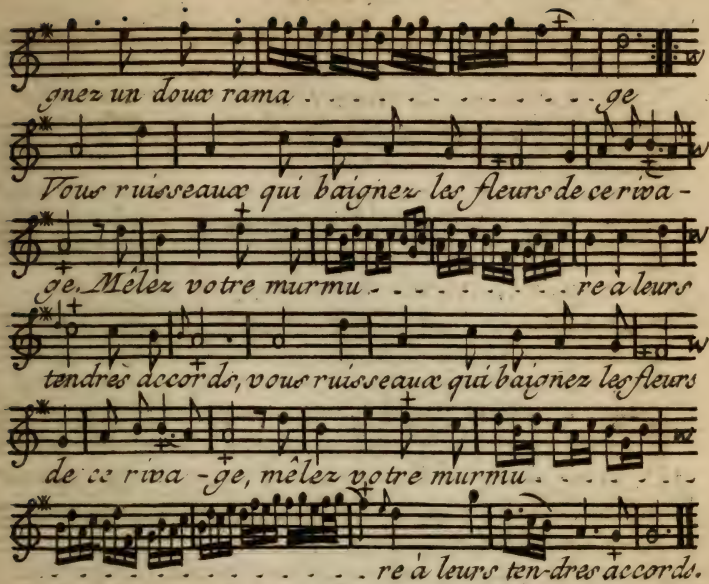 gnez un doux rama . . . . . . . . . . . . . . . ge
Vous ruisseaux qui baignez les fleurs de ce riva -
ge. Mêlez votre murmu . . . . . . . . . . . re à leurs
tendres accords, vous ruisseaux qui baignez les fleurs
de ce riva - ge, mêlez votre murmu . . . . . . .
. . . . . . . . . . . . . . . re à leurs ten-dres accords.